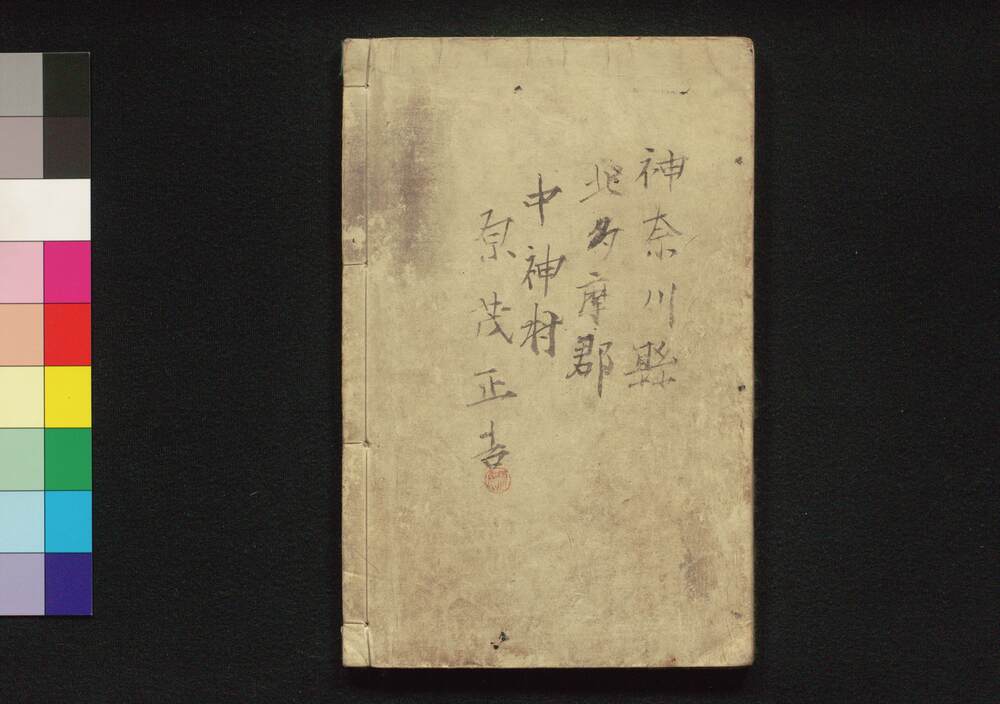 神奈川縣
北多摩郡
中神村
原茂正吉